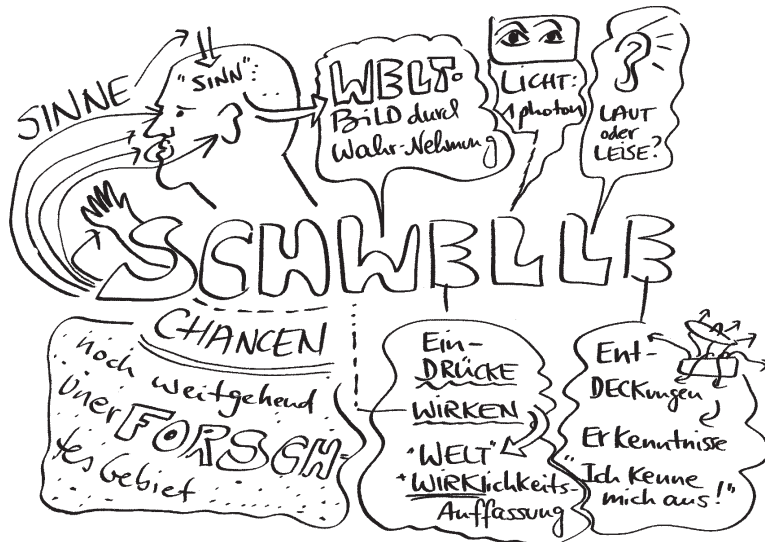 SINNE
"SINN":
WELT-
BILD durch
Wahr-Nehmung
LICHT:
1 photon
LAUT
oder
LEISE?
SCHWELLE
CHANCEN
noch weitgehend
unerFORSCH-
tes Gebiet
Ein-
DRÜCKE
WIRKEN
"WELT"
"WIRKlichkeits-
Auffassung
Ent-
DECKungen
Erkenntnisse
"Ich kenne
mich aus!"